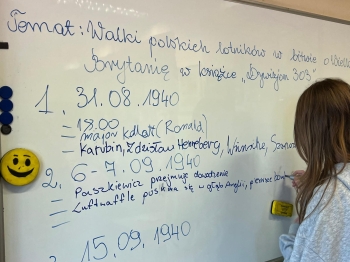 Temat: Walki polskich lotników w bitwie o Wielką
Brytanię w książce „Dywizjon 303"
1. 31.08.1940
= 18.00
= major kdkatt (Ronald)
= Karubin, Zdzisław Henneberg, Wünsche,
2. 6-7.09.1940
= Paszkiewicz przejmuje dowodzenie
= Luftwaffle posuwa się w głąb Anglii, pierwsze
=
3. 15.09.1940